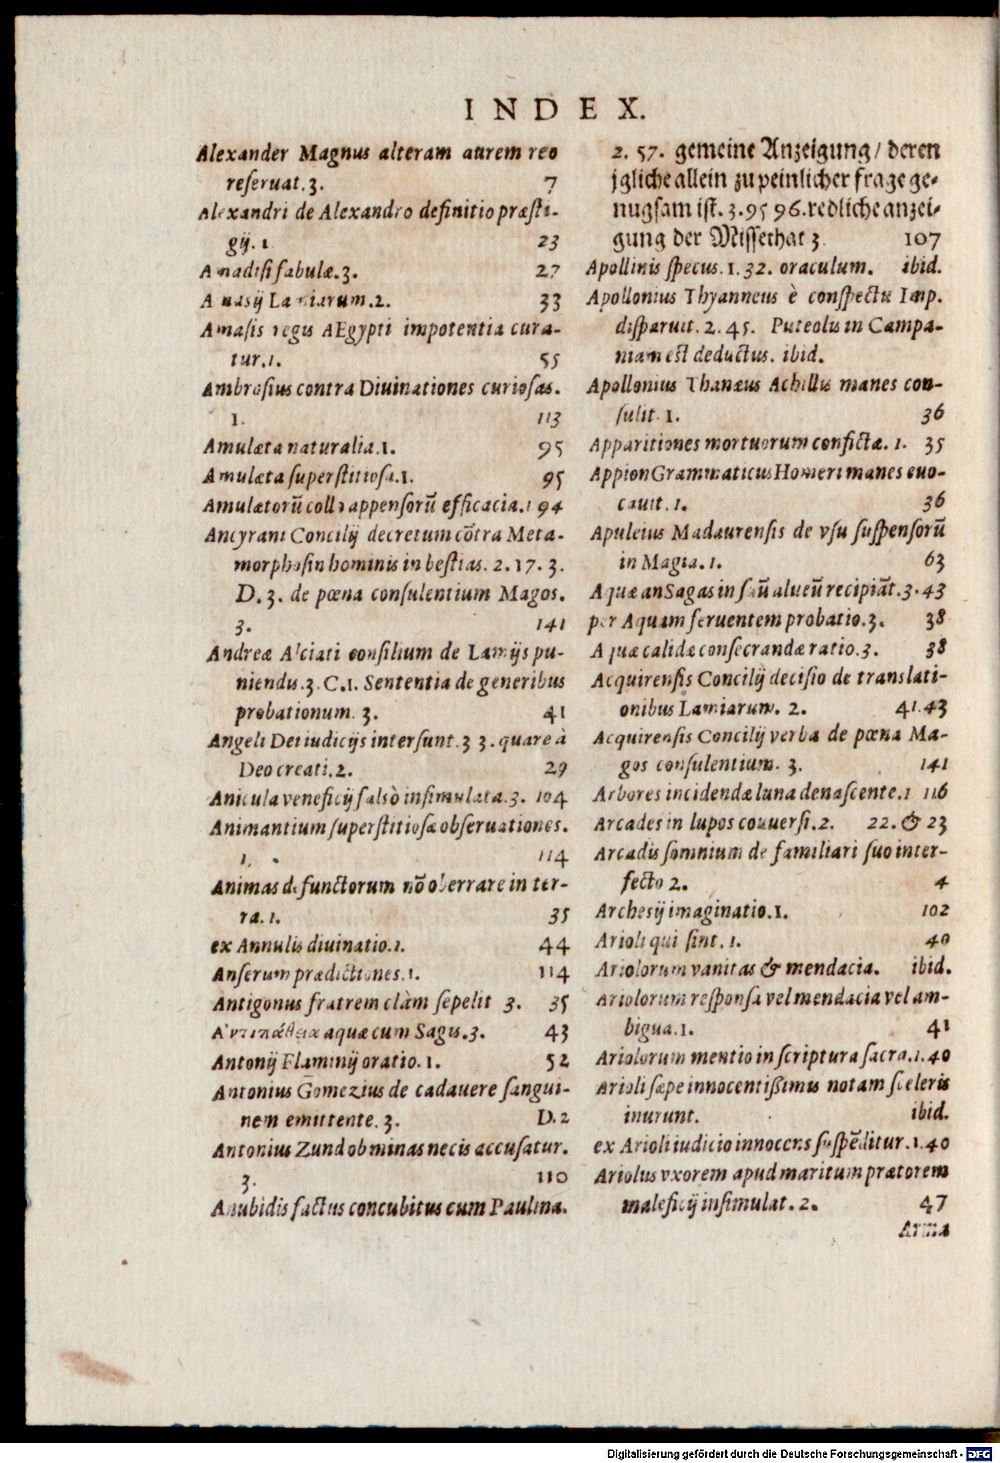 INDEX.
Alexander Magnus alteram aurem reo
reſeruat. 3. 7
Alexandri de Alexandro definitio præſti-
gij. 1 23
Amadiſi fabulæ. 3. 27
Amasij Lamiarum. 2. 33
Amaſis regis AEgypti impotentia cura-
tur. 1. 55
Ambroſius contra Diuinationes curioſas.
1. 113
Amulæta naturalia. 1. 95
Amulæta ſuperſtitioſa. 1. 95
Amulætorū collo appenſorū efficacia. 1 94
Ancyrani Concilij decretum cōtra Meta-
morphoſin hominis in beſtias. 2. 17. 3.
D. 3. de pœna conſulentium Magos.
3. 141
Andreæ Alciati conſilium de Lamijs pu-
niendis. 3. C. 1. Sententia de generibus
probationum. 3. 41
Angeli Dei iudicijs interſunt. 3 3. quare à
Deo creati. 2. 29
Anicula veneficij falsò inſimulata. 3. 104
Animantium ſuperſtitioſæ obſeruationes.
1. 114
Animas defunctorum nō oberrare in ter-
ra. 1. 35
ex Annulis diuinatio. 1. 44
Anſerum prædictiones. 1. 114
Antigonus fratrem clàm ſepelit 3. 35
aquæ cum Sagis. 3. 43
Antonij Flaminij oratio. 1. 52
Antonius Gomezius de cadauere ſangui-
nem emittente. 3. D. 2
Antonius Zund ob minas necis accuſatur.
3. 110
Anubidis factus concubitus cum Paulina.
2. 57. gemeine Anzeigung / deren
jgliche allein zu peinlicher frage ge-
nugsam iſt. 3. 95 96. redliche anzei-
gung der Miſſethat 3. 107
Apollinis ſpecus. 1. 32. oraculum. ibid.
Apollonius Thyanneus è conſpectu Imp.
diſparuit. 2. 45. Puteolis in Campa-
niam eſt deductus. ibid.
Apollonius Thanæus Achillis manes con-
ſulit. 1. 36
Apparitiones mortuorum confictæ. 1. 35
Appion Grammaticus Homeri manes euo-
cauit. 1. 36
Apuleius Madaurenſis de vſu ſuſpenſorū
in Magia. 1. 63
Aquæ an Sagas in ſuū alueū recipiāt. 3. 43
per Aquam feruentem probatio. 3. 38
Aquæ calidæ conſecrandæ ratio. 3. 38
Acquirenſis Concilij deciſio de translati-
onibus Lamiarum. 2. 41. 43
Acquirenſis Concilij verba de pœna Ma-
gos conſulentium. 3. 141
Arbores incidendæ luna denaſcente. 1 116
Arcades in lupos conuerſi. 2. 22. & 23
Arcadis ſomnium de familiari ſuo inter-
fecto 2. 4
Archesij imaginatio. 1. 102
Arioli qui ſint. 1. 40
Ariolorum vanitas & mendacia. ibid.
Ariolorum reſponſa vel mendacia vel am-
bigua. 1. 41
Ariolorum mentio in ſcriptura ſacra. 1. 40
Arioli ſæpe innocentißimis notam ſceleris
inurunt. ibid.
ex Arioli iudicio innocens ſuſpēditur. 1. 40
Ariolus vxorem apud maritum prætorem
maleficij inſimulat. 2. 47
Arma
Digitalisierung gefördert durch die Deutsche Forschungsgemeinschaft - DFG